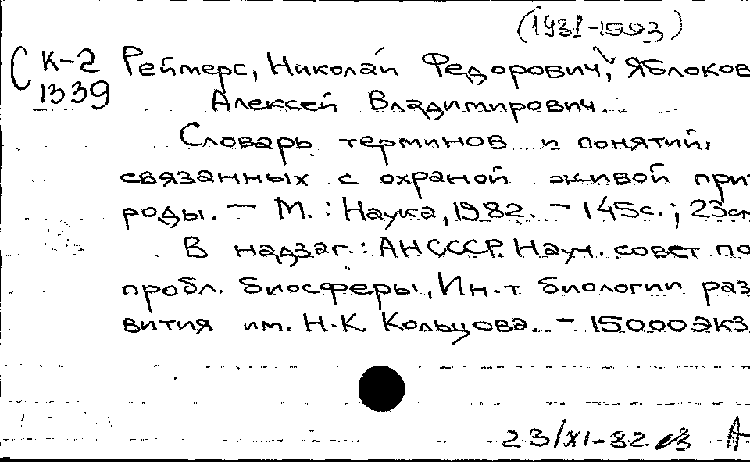 (1931-1993)
С К-2 Реймерс, Николай Федорович, Яблоков
1339 Алексей Владимирович.
Словарь терминов и понятий,
связанных с охраной живой при-
роды. — М.: Наука, 1982. — 145с.; 23см
В надзаг.: АН СССР. Науч. совет по
пробл. биосферы, Ин-т биологии раз
вития им. Н.К. Кольцова. — 15000экз
23/XI-82 А